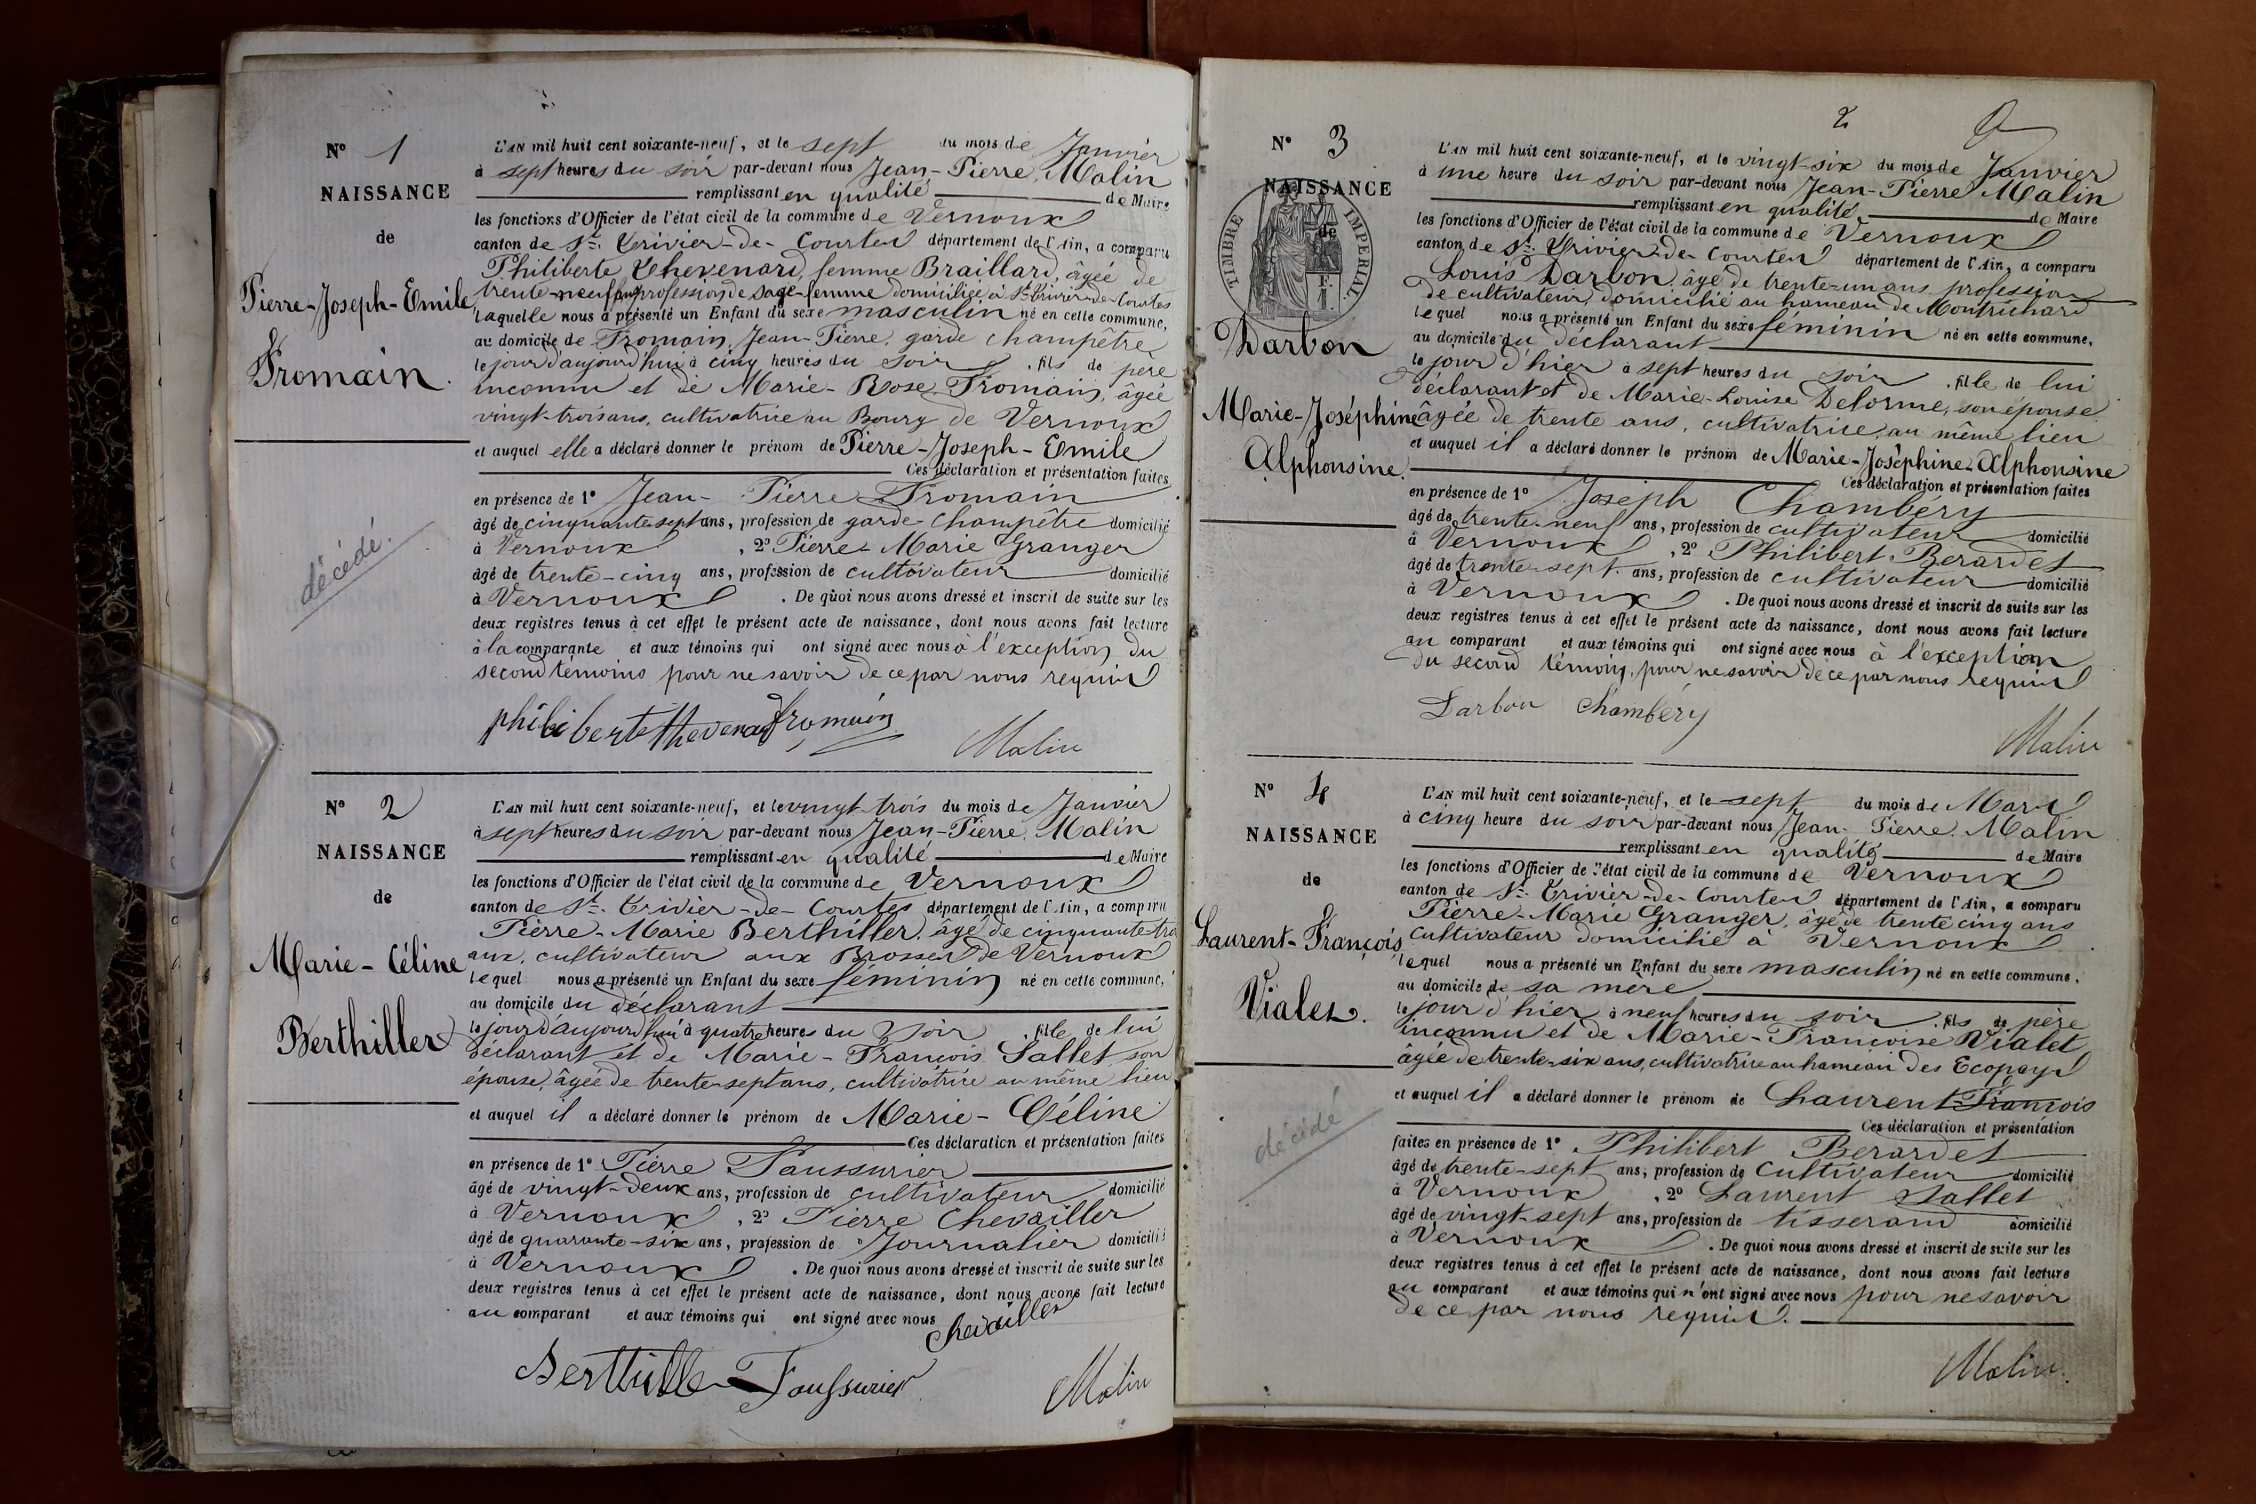 N° 1
NAISSANCE
de
Pierre-Joseph-Emile
Fromain.
décédé.
L'AN mil huit cent soixante-neuf, et le sept du mois de Janvier
à sept heures du soir par-devant nous Jean-Pierre Malin
remplissant en qualité de Maire
les fonctions d'Officier de l'état civil de la commune de Vernoux
canton de St. Trivier-de-Courtes département de l'Ain, a comparu
Philiberte Thevenard, femme Braillard, âgée de
trente-neuf ans profession de sage-femme domiciliée à St. Trivier-de-Courtes
laquelle nous a présenté un Enfant du sexe masculin né en cette commune,
au domicile de Fromain, Jean-Pierre, garde champêtre
le jour d'aujourd'hui à cinq heures du soir, fils de père
inconnu et de Marie-Rose Fromain, âgée
vingt-trois ans, cultivatrice au Bourg de Vernoux
et auquel elle a déclaré donner le prénom de Pierre-Joseph-Emile
Ces déclaration et présentation faites
en présence de 1° Jean-Pierre Fromain
âgé de cinquante-sept ans, profession de garde-champêtre domicilié
à Vernoux, 2° Pierre-Marie Granger
âgé de trente-cinq ans, profession de cultivateur domicilié
à Vernoux. De quoi nous avons dressé et inscrit de suite sur les
deux registres tenus à cet effet le présent acte de naissance, dont nous avons fait lecture
à la comparante et aux témoins qui ont signé avec nous à l'exception du
second témoins pour ne savoir de ce par nous requis
philiberte thevenard fromain
Malin
N° 2
NAISSANCE
de
Marie-Céline
Berthiller
L'AN mil huit cent soixante-neuf, et le vingt-trois du mois de Janvier
à sept heures du soir par-devant nous Jean-Pierre Malin
remplissant en qualité de Maire
les fonctions d'Officier de l'état civil de la commune de Vernoux
canton de St. Trivier-de-Courtes département de l'Ain, a comparu
Pierre-Marie Berthiller, âgé de cinquante tro
ans, cultivateur aux Brosses de Vernoux
lequel nous a présenté un Enfant du sexe féminin né en cette commune,
au domicile du déclarant
le jour d'aujourd'hui à quatre heures du soir, fille de lui
déclarant et de Marie-François Sallet, son
épouse, âgée de trente-sept ans, cultivatrice au même lieu
et auquel il a déclaré donner le prénom de Marie-Céline
Ces déclaration et présentation faites
en présence de 1° Pierre Faussurier
âgé de vingt-deux ans, profession de cultivateur domicilié
à Vernoux, 2° Pierre Chevailler
âgé de quarante-six ans, profession de Journalier domicilié
à Vernoux. De quoi nous avons dressé et inscrit de suite sur les
deux registres tenus à cet effet le présent acte de naissance, dont nous avons fait lecture
au comparant et aux témoins qui ont signé avec nous
Chevailler
Berthiller Faussurier
Malin
2
N° 3
NAISSANCE
de
TIMBRE IMPERIAL
Darbon
Marie-Joséphine
Alphonsine.
L'AN mil huit cent soixante-neuf, et le vingt-six du mois de Janvier
à une heure du soir par-devant nous Jean-Pierre Malin
remplissant en qualité de Maire
les fonctions d'Officier de l'état civil de la commune de Vernoux
canton de St. Trivier-de-Courtes département de l'Ain, a comparu
Louis Darbon, âgé de trente-un ans profession
de cultivateur, domicilié au hameau de Montrichard
lequel nous a présenté un Enfant du sexe féminin né en cette commune,
au domicile du déclarant
le jour d'hier à sept heures du soir, fille de lui
déclarant et de Marie-Louise Delorme, son épouse
âgée de trente ans, cultivatrice au même lieu
et auquel il a déclaré donner le prénom de Marie-Joséphine-Alphonsine
Ces déclaration et présentation faites
en présence de 1° Joseph Chambéry
âgé de trente-neuf ans, profession de cultivateur domicilié
à Vernoux, 2° Philibert Berardet
âgé de trente-sept ans, profession de cultivateur domicilié
à Vernoux. De quoi nous avons dressé et inscrit de suite sur les
deux registres tenus à cet effet le présent acte de naissance, dont nous avons fait lecture
au comparant et aux témoins qui ont signé avec nous à l'exception
du second témoin, pour ne savoir de ce par nous requis
Darbon Chambéry
Malin
N° 4
NAISSANCE
de
Laurent-François
Vialet.
décédé
L'AN mil huit cent soixante-neuf, et le sept du mois de Mars
à cinq heure du soir par-devant nous Jean-Pierre Malin
remplissant en qualité de Maire
les fonctions d'Officier de l'état civil de la commune de Vernoux
canton de St. Trivier-de-Courtes département de l'Ain, a comparu
Pierre-Marie Granger, âgé de trente cinq ans
cultivateur domicilié à Vernoux
lequel nous a présenté un Enfant du sexe masculin né en cette commune,
au domicile de sa mère
le jour d'hier à neuf heures du soir, fils de père
inconnu et de Marie-Françoise Vialet
âgée de trente-six ans, cultivatrice au hameau des Ecopays
et auquel il a déclaré donner le prénom de Laurent-François
Ces déclaration et présentation
faites en présence de 1° Philibert Berardet
âgé de trente-sept ans, profession de cultivateur domicilié
à Vernoux, 2° Laurent Sallet
âgé de vingt-sept ans, profession de tisserand domicilié
à Vernoux. De quoi nous avons dressé et inscrit de suite sur les
deux registres tenus à cet effet le présent acte de naissance, dont nous avons fait lecture
au comparant et aux témoins qui n'ont signé avec nous pour ne savoir
de ce par nous requis.
Malin.